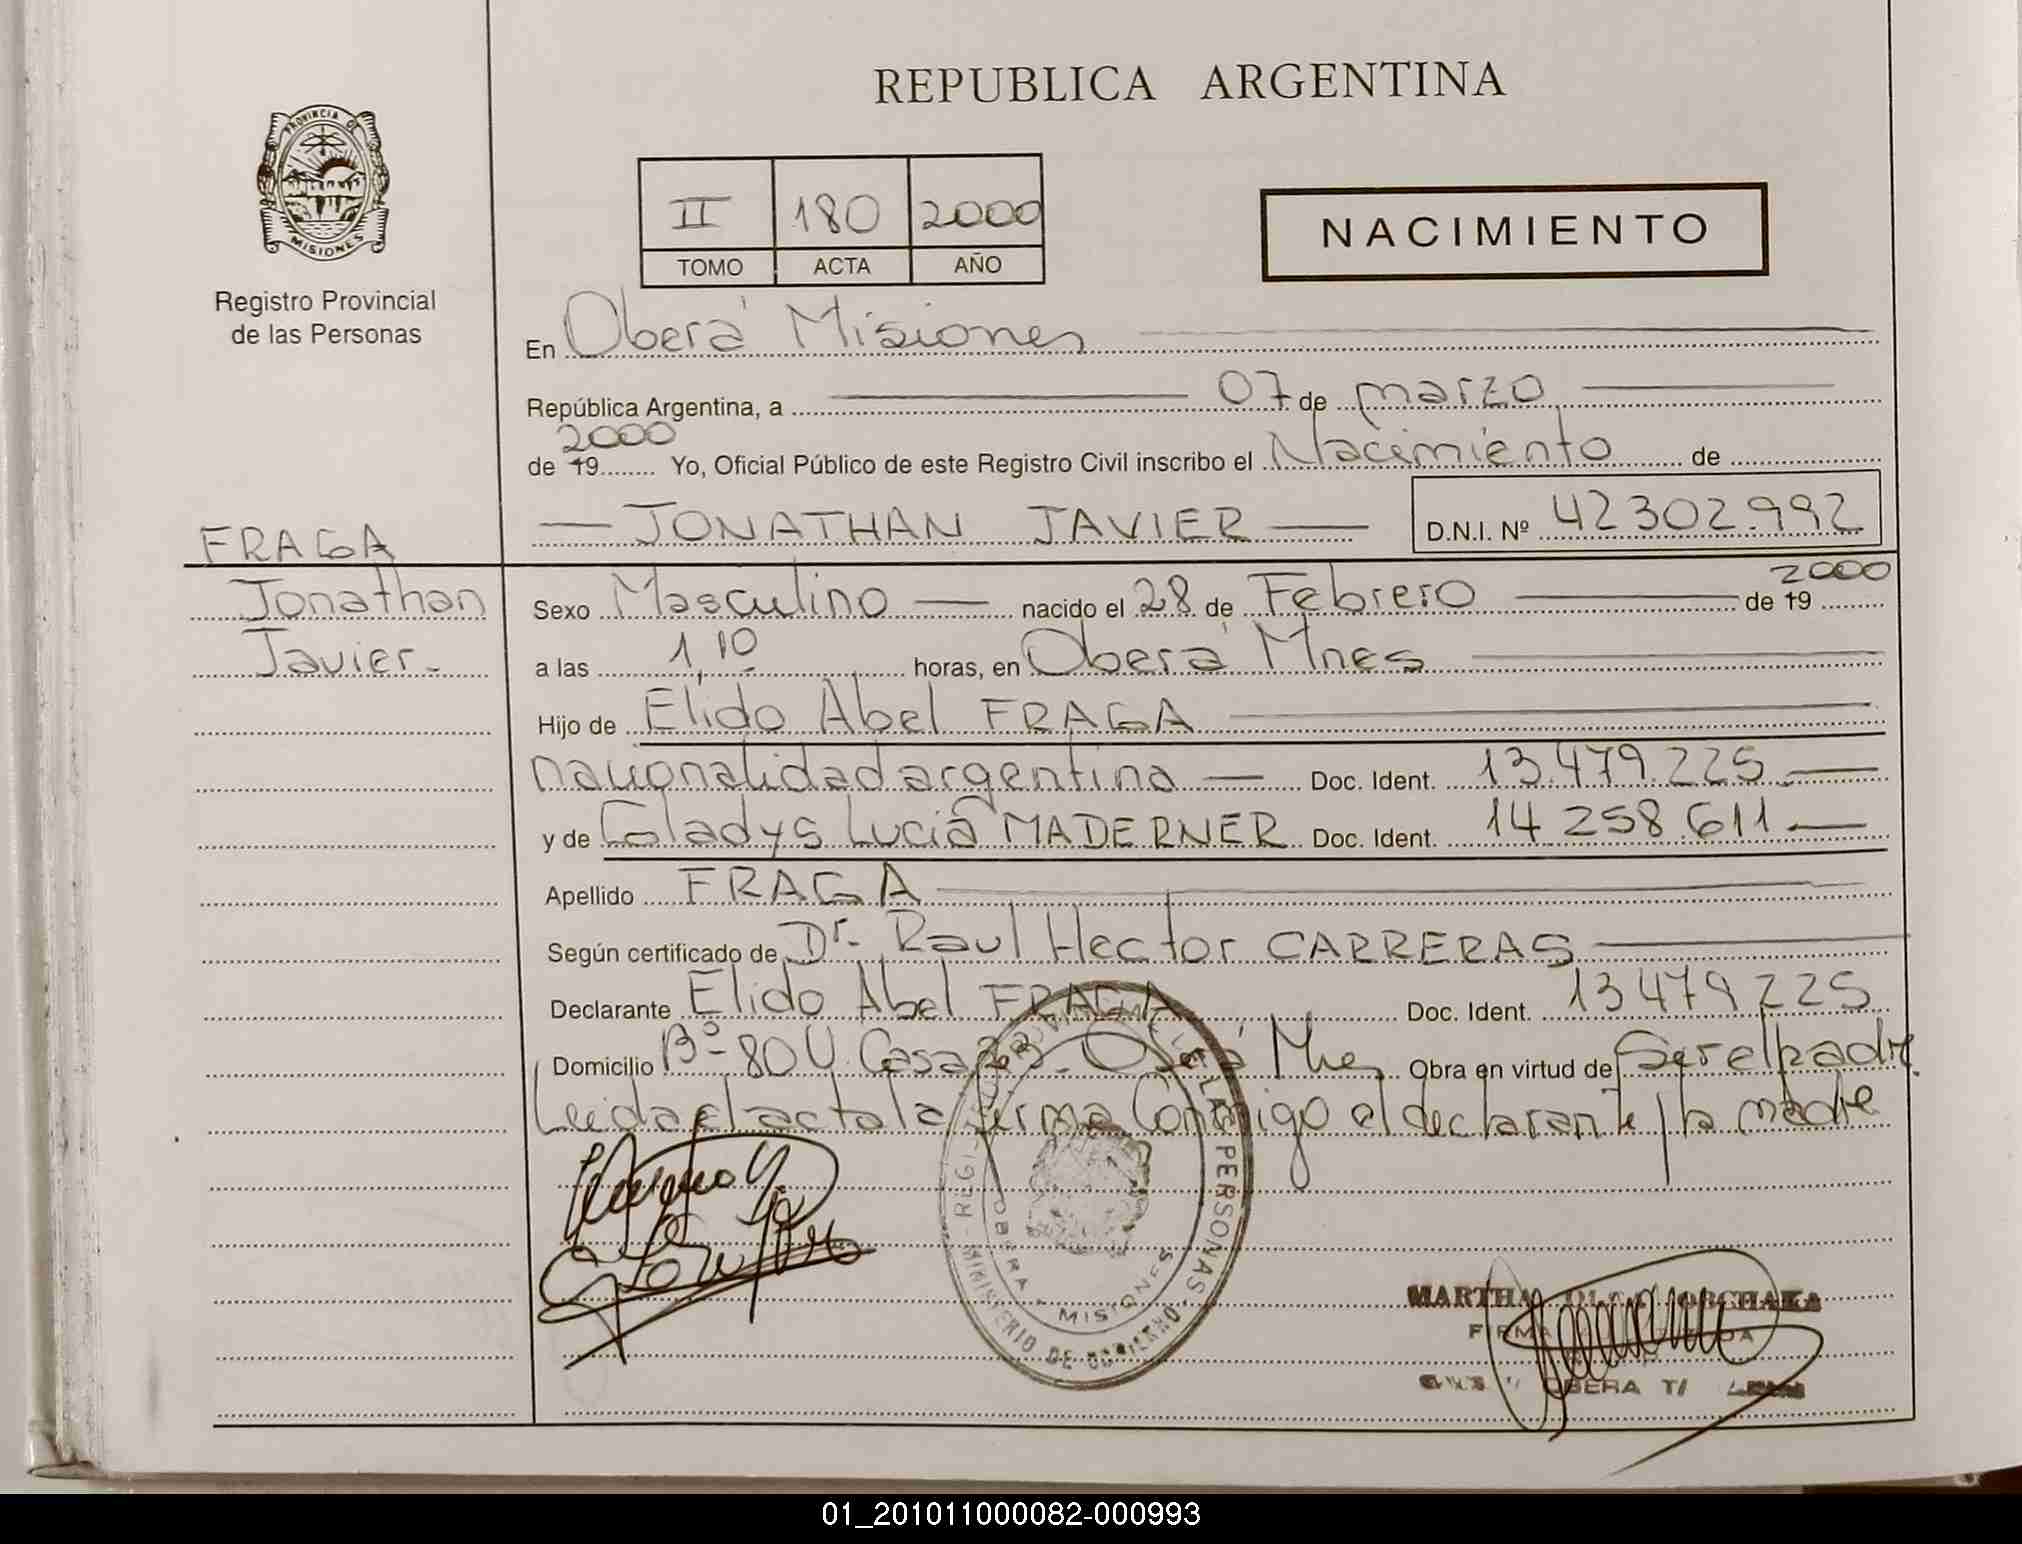 REPUBLICA ARGENTINA
PROVINCIA DE
MISIONES
Registro Provincial
de las Personas
II 180 2000
TOMO ACTA AÑO
NACIMIENTO
En Oberá Misiones
República Argentina, a 07 de marzo
2000
de 19........ Yo, Oficial Público de este Registro Civil inscribo el Nacimiento de
JONATHAN JAVIER D.N.I. Nº 42302.992
FRAGA
Jonathan
Javier.-
2000
Sexo Masculino nacido el 28 de Febrero de 19
a las 1,10 horas, en Oberá Mnes
Hijo de Elido Abel FRAGA
nacionalidad argentina Doc. Ident. 13.479.225
y de Gladys Lucia MADERNER Doc. Ident. 14 258 611
Apellido FRAGA
Según certificado de Dr. Raul Hector CARRERAS
Declarante Elido Abel FRAGA Doc. Ident. 13479225
Domicilio Bº- 80 V. Casa Oberá Mnes Obra en virtud de Ser el padre.
Leida el acta la firma Conmigo el declarante y la madre
LAS PERSONAS
MINISTERIO DE GOBIERNO
OBERA - MISIONES
MARTHA
FIRMA
OBERA
01_201011000082-000993